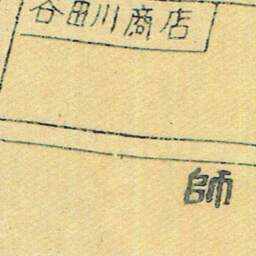 谷田川商店
師